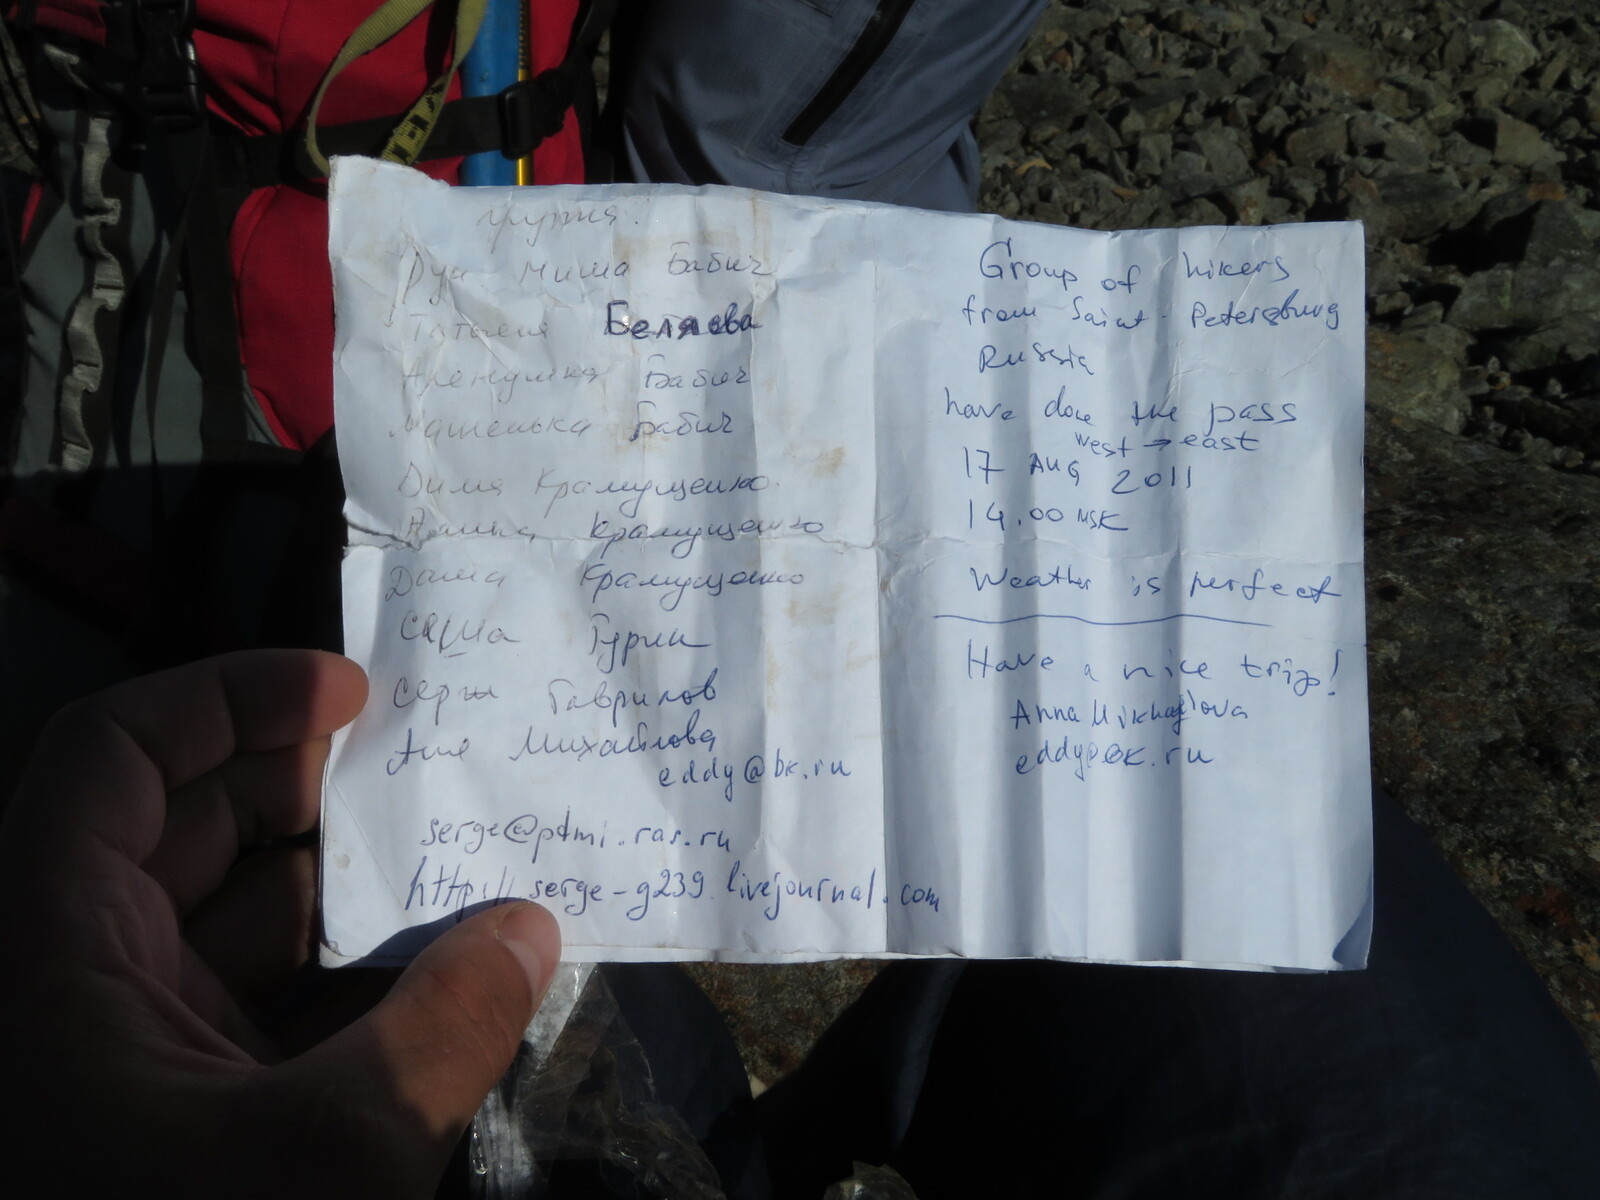 группа:
Рук Миша Бабич
Татьяна Беляева
Аленушка Бабич
Машенька Бабич
Дима Крамущенко
Крамущенко
Даша Крамущенко
Саша Гурин
Серж Гаврилов
Аня Михайлова
eddy@bk.ru
serge@pdmi.ras.ru
http://serge-g239.livejournal.com
Group of hikers
from Saint-Petersburg
Russia
have done the pass
west → east
17 AUG 2011
14.00 MSK
Weather is perfect
Have a nice trip!
Anna Mikhaylova
eddy@BK.ru